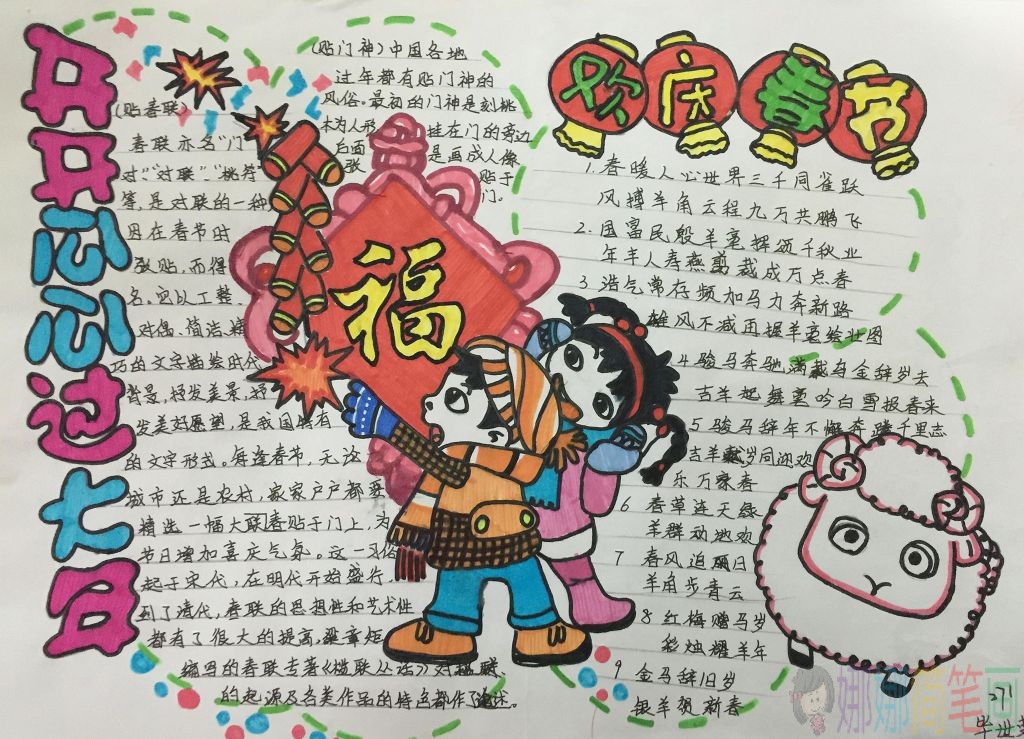 开开心心过大年
欢庆春节
(贴春联)
春联亦名“门
对”“对联”“桃符”
等,是对联的一种
因在春节时
张贴,而得
名。它以工整、
对偶、简洁、精
巧的文字描绘时代
背景,抒发美景,抒
发美好愿望,是我国特有
的文字形式。每逢春节,无论
城市还是农村,家家户户都要
精选一幅大联春贴于门上,为
节日增加喜庆气氛。这一习俗
起于宋代,在明代开始盛行,
到了清代,春联的思想性和艺术性
都有了很大的提高,梁章矩
编写的春联专著《槛联丛话》对楹联
的起源及各类作品的特色都作了论述。
(贴门神)中国各地
过年都有贴门神的
风俗。最初的门神是刻桃
木为人形 挂在门的旁边
后面 是画成人像
张 贴于
门。
福
1. 春暖人心世界三千同雀跃
风搏羊角云程九万共鹏飞
2. 国富民殷羊毫挥颂千秋业
年丰人寿燕剪裁成万点春
3 浩气常存频加马力奔新路
雄风不减再握羊毫绘壮图
4 骏马奔驰满载乌金辞岁去
吉羊起舞高吟白雪报春来
5 骏马辞年不懈奔腾千里志
吉羊献岁同迎欢
乐万家春
6 春草连天绿
羊群动地欢
7 春风追丽日
羊角步青云
8 红梅赠马岁
彩灿耀羊年
9 金马辞旧岁
银羊贺新春
271
毕世
娜娜简笔画